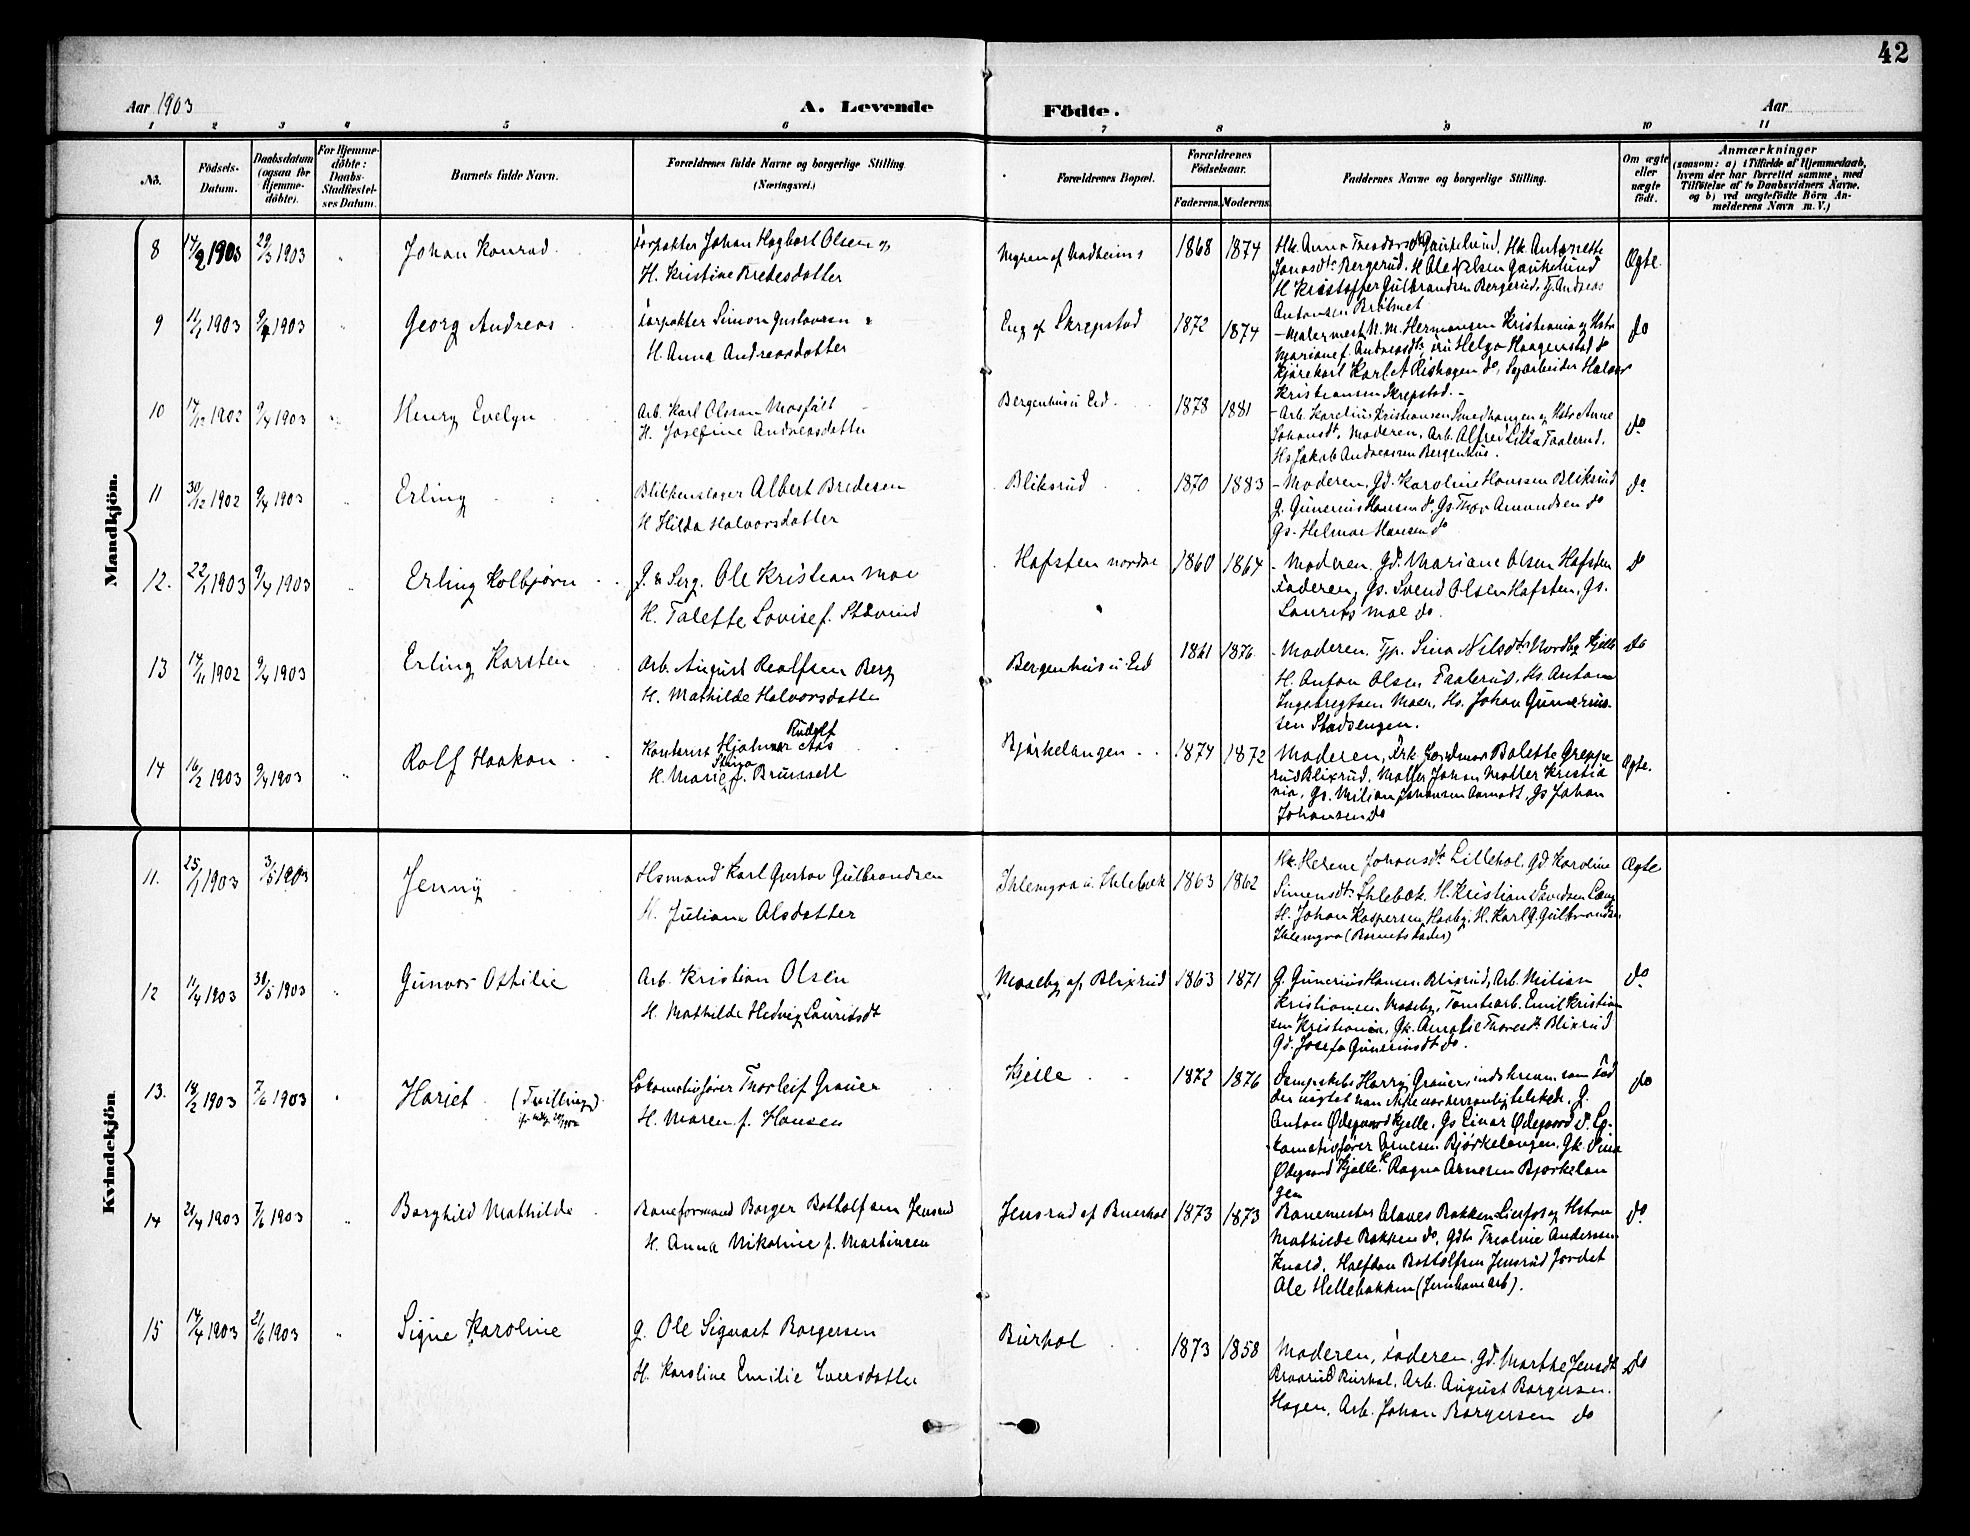 42
Aar 1903
A. Levende
Födte.
Aar
1 2 3 4 5 6 7 8 9 10 11
No.
Födsels-
Datum.
Daabsdatum
(ogsaa for
Hjemme-
döbte).
For Hjemme-
döbte:
Daabs-
Stadfæstel-
ses Datum.
Barnets fulde Navn.
Forældrenes fulde Navne og borgerlige Stilling
(Næringsvei.)
Forældrenes Bopæl.
Forældrenes
Födselsaar.
Faderens.
Moderens.
Faddernes Navne og borgerlige Stilling.
Om ægte
eller
uægte
født.
Anmærkninger
(saasom: a) i Tilfælde af Hjemmedaab,
hvem der har forrettet samme, med
Tilföielse af to Daabsvidners Navne,
og b) ved uægtefödte Börn An-
melderens Navn m. V.)
Mandkjön.
8 14/2 1903 29/3 1903 " Johan Konrad
Forpakter Johan Hagbart Olsen og
H. Kristine Bredesdatter
1868 1874
Jonasdt. Bergerud. H. Ole Nilsen Gaukelund
H Kristoffer Gulbrandsen Bergerud, G. Andreas
Ægte.
9 11/1 1903 9/4 1903 " Georg Andreas
Forpakter Simon Gustavsen
H. Anna Andreasdatter
Eng af Skrepstad
1872 1874
Kjørekarl Karl A Rishagen do, Sagarbeider Halvor
Kristiansen Skrepstad. -
do
10 17/12 1902 9/4 1903 Henry Evelyn
Arb. Karl Olsson Mosfält
H. Josefine Andreasdatter
Bergenhus i Eid
1878 1881
Johansdt, Moderen, Arb. Alfred Faalerud,
Hs Jakob Andreassen Bergenhus.
do
11 30/12 1902 9/4 1903 " Erling
Blikkenslager Albert Bredesen
H Hilda Halvorsdatter
Bliksrud
1870 1883
- Moderen, Gd. Karoline Hanssen Bliksrud
G. Gunerius Hansen do, Gs. Thor Amundsen do
Gs. Helmar Hansen do
do
12. 22/1 1903 9/4 1903 " Erling Kolbjørn
G. & Serg. Ole Kristian Moe
H. Talette Lovise f. Stavrud
Hafsten nordre
1860 1864
- Moderen, Gd. Mariane Olsen Hafsten
Faderen, Gs. Svend Olsen Hafsten, Gs.
Laurits Moe do.
do
13 14/11 1902 9/4 1903 Erling Karsten
Arb. August Realfsen Berg
H. Mathilde Halvorsdatter
Bergenhus i Eid
1861 1876
- Moderen, Tjp. Sina Nilsdt. Nordby Kjelle
H. Anton Olsen Faalerud, Hs. Anton
Ingebregtsen Moen, Hs. Johan Gunerius-
sen Stadsengen.
do
14 16/2 1903 9/4 1903 " Rolf Haakon
Rudolf
Kontorist Hjalmar Aas
H. Marie f. Brunsell
Bjørkelangen
1874 1872
rud Blixrud, Møller Johan Møller Kristia
nia, Gs. Milian Johansen Aarnodt, Gs Johan
Johansen do
Ægte.
Kvindekjön
11. 25/1 1903 3/5 1903 Jenny
Hsmand Karl Gustav Gulbrandsen
H. Juliane Olsdatter
1863 1862
Hk. Helene Johansdt. Lillehol, Gd Karoline
Simensdt. Ihlebæk, H. Kristian Davidsen
H. Johan Kaspersen Haaby, H. Karl G. Gulbrandsen
Ihlemyra (Barnets Fader)
Ægte
12 11/4 1903 30/5 1903 " Gunvor Othilie
Arb. Kristian Olsen
H. Mathilde Hedvig Lauridsdt
Moseby af Blixrud
1863 1871
G. Gunerius Hansen Blixrud, Arb. Milian
Kristiansen Moseby, Tomtearb. Emil Kristian
sen Kristiania, Gk. Amalie Thoresdt. Blixrud
Gd. Josefa Guneriusdt. do.
do
13. 14/2 1903 7/6 1903 " Hariet (Tvilling)
Lokomotivfører Thorleif Grauer
H. Maren f. Hansen
Kjelle
1872 1876
Anton Ødegaard Kjelle, Gs Einar Ødegaard do. Lo-
komotivfører Arnesen Bjørkelangen, Gk. Dina
Ødegaard Kjelle. Ragna Arnesen Bjørkelan
gen
do
14 21/4 1903 7/6 1903 " Borghild Mathilde
Baneformand Borger Bottolfsen Jensrud
H. Anna Nikoline f. Martinsen
Jensrud af Buerhol
1873 1873
Banemester Olaves Bakken Lierfos og Hstru
Mathilde Bakken do, Gdt. Thealine Andersen
Knold, Halfdan Bottolfsen Jensrud Jordet
Ole Hellebakken (Jernbanearb).
do
15 17/4 1903 21/6 1903 " Signe Karoline
G. Ole Sigvart Borgersen
H. Karoline Emilie Iversdatter
Burhol
1873 1858
Moderen, Faderen, Gd. Marthe Jensdt
Braarud Burhol, Arb. August Borgersen
Hagen, Arb. Johan Borgersen do
do